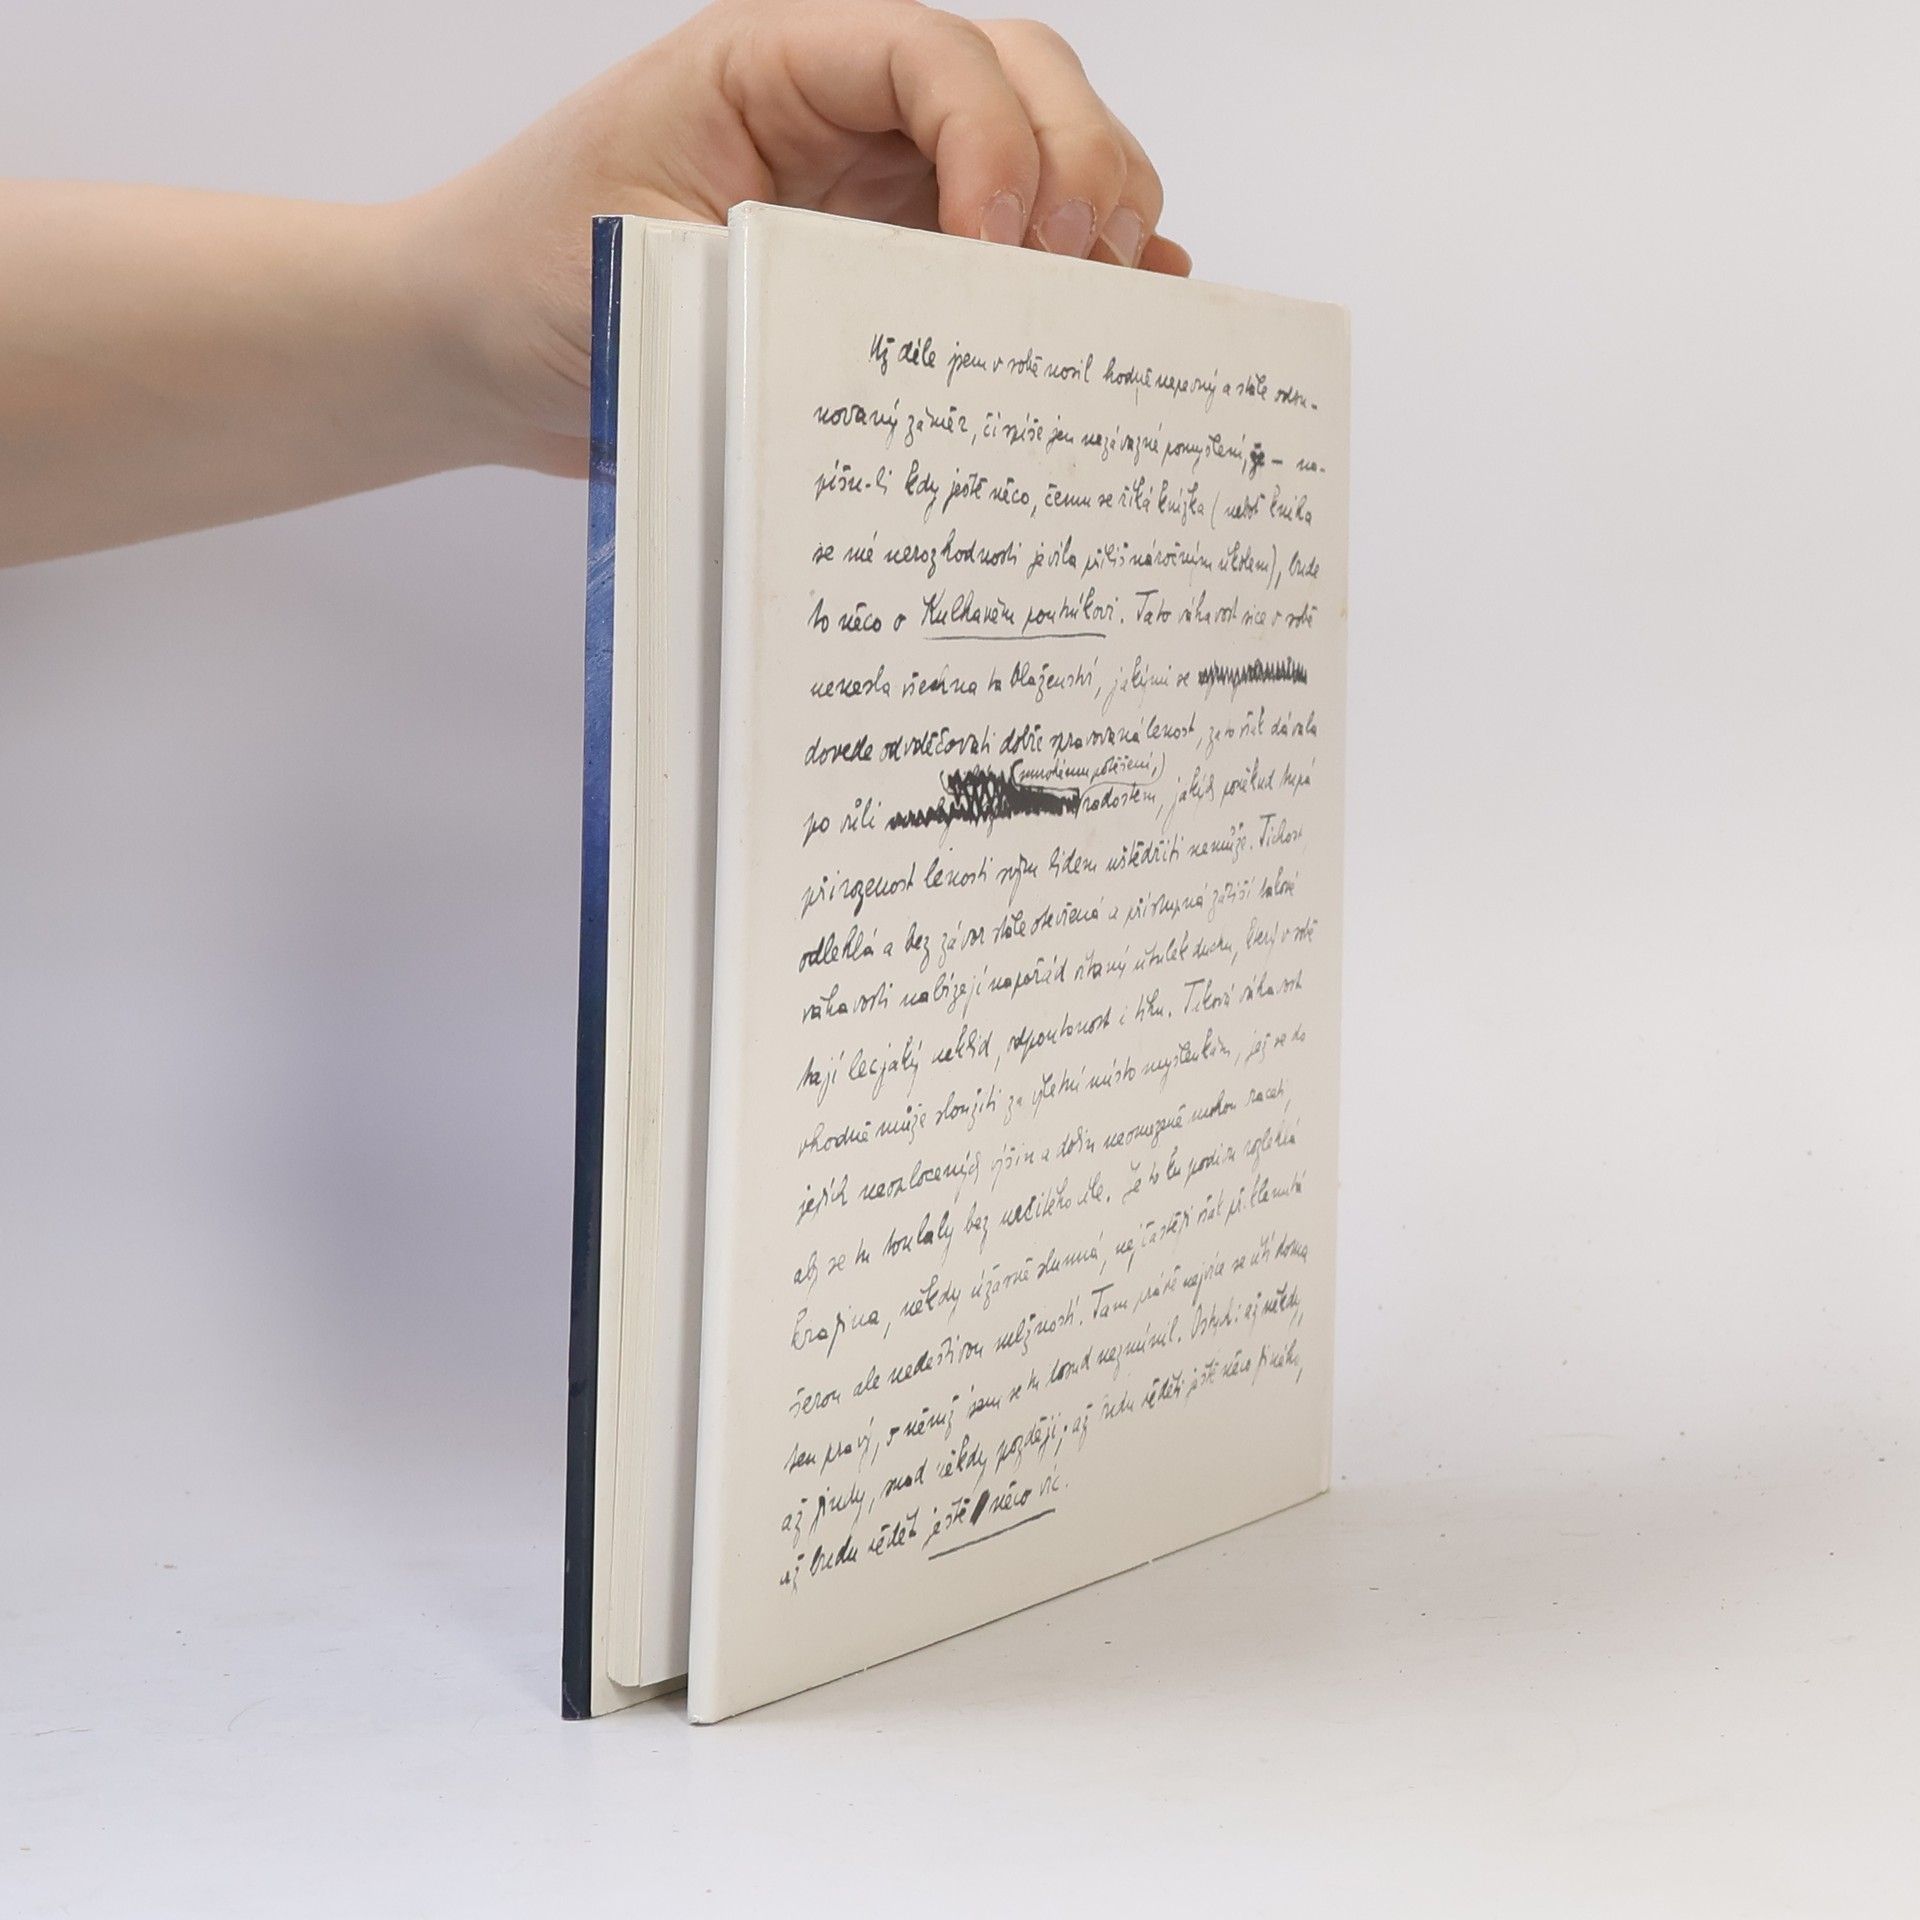 Už déle jsem v sobě nosil hodně nepevný a stále odsu-
novaný záměr, či spíše jen nezávazné pomyšlení, že — na-
píšu-li kdy ještě něco, čemu se říká knížka (neboť kniha
se mé nerozhodnosti jevila příliš náročným úkolem), bude
to něco o Kulhavém poutníkovi. Tato váhavost sice v sobě
nenesla všechna ta blaženství, jakými se
dovede odvděčovati dobře spravovaná lenost, zato však dávala
po vůli (mnohému potěšení,) radostem, jakých poněkud tupá
přirozenost lenosti svým lidem uštědřiti nemůže. Tichou,
odlehlá a bez závor stále otevřená a přístupná zátiší takové
váhavosti nabízejí napořád vítaný útulek duchu, který v sobě
tají lecjaký neklid, odpoutanost i tíhu. Taková váhavost
vhodně může sloužiti za výletní místo myšlenkám, jež se do
jejích neoplocených výšin a dolin neomezeně mohou vraceti,
aby se tu toulaly bez určitého cíle. Je to tu podivu rozlehlá
krajina, někdy úžasně slunná, nejčastěji však přiklenutá
šerou ale nedeštivou mlžností. Tam právě nejvíce se cítí doma
ten pravý, o němž jsem se tu dosud nezmínil. Ostych: až někdy,
až jindy, snad někdy později; až budu věděti ještě něco jiného,
až budu vědět ještě něco víc.